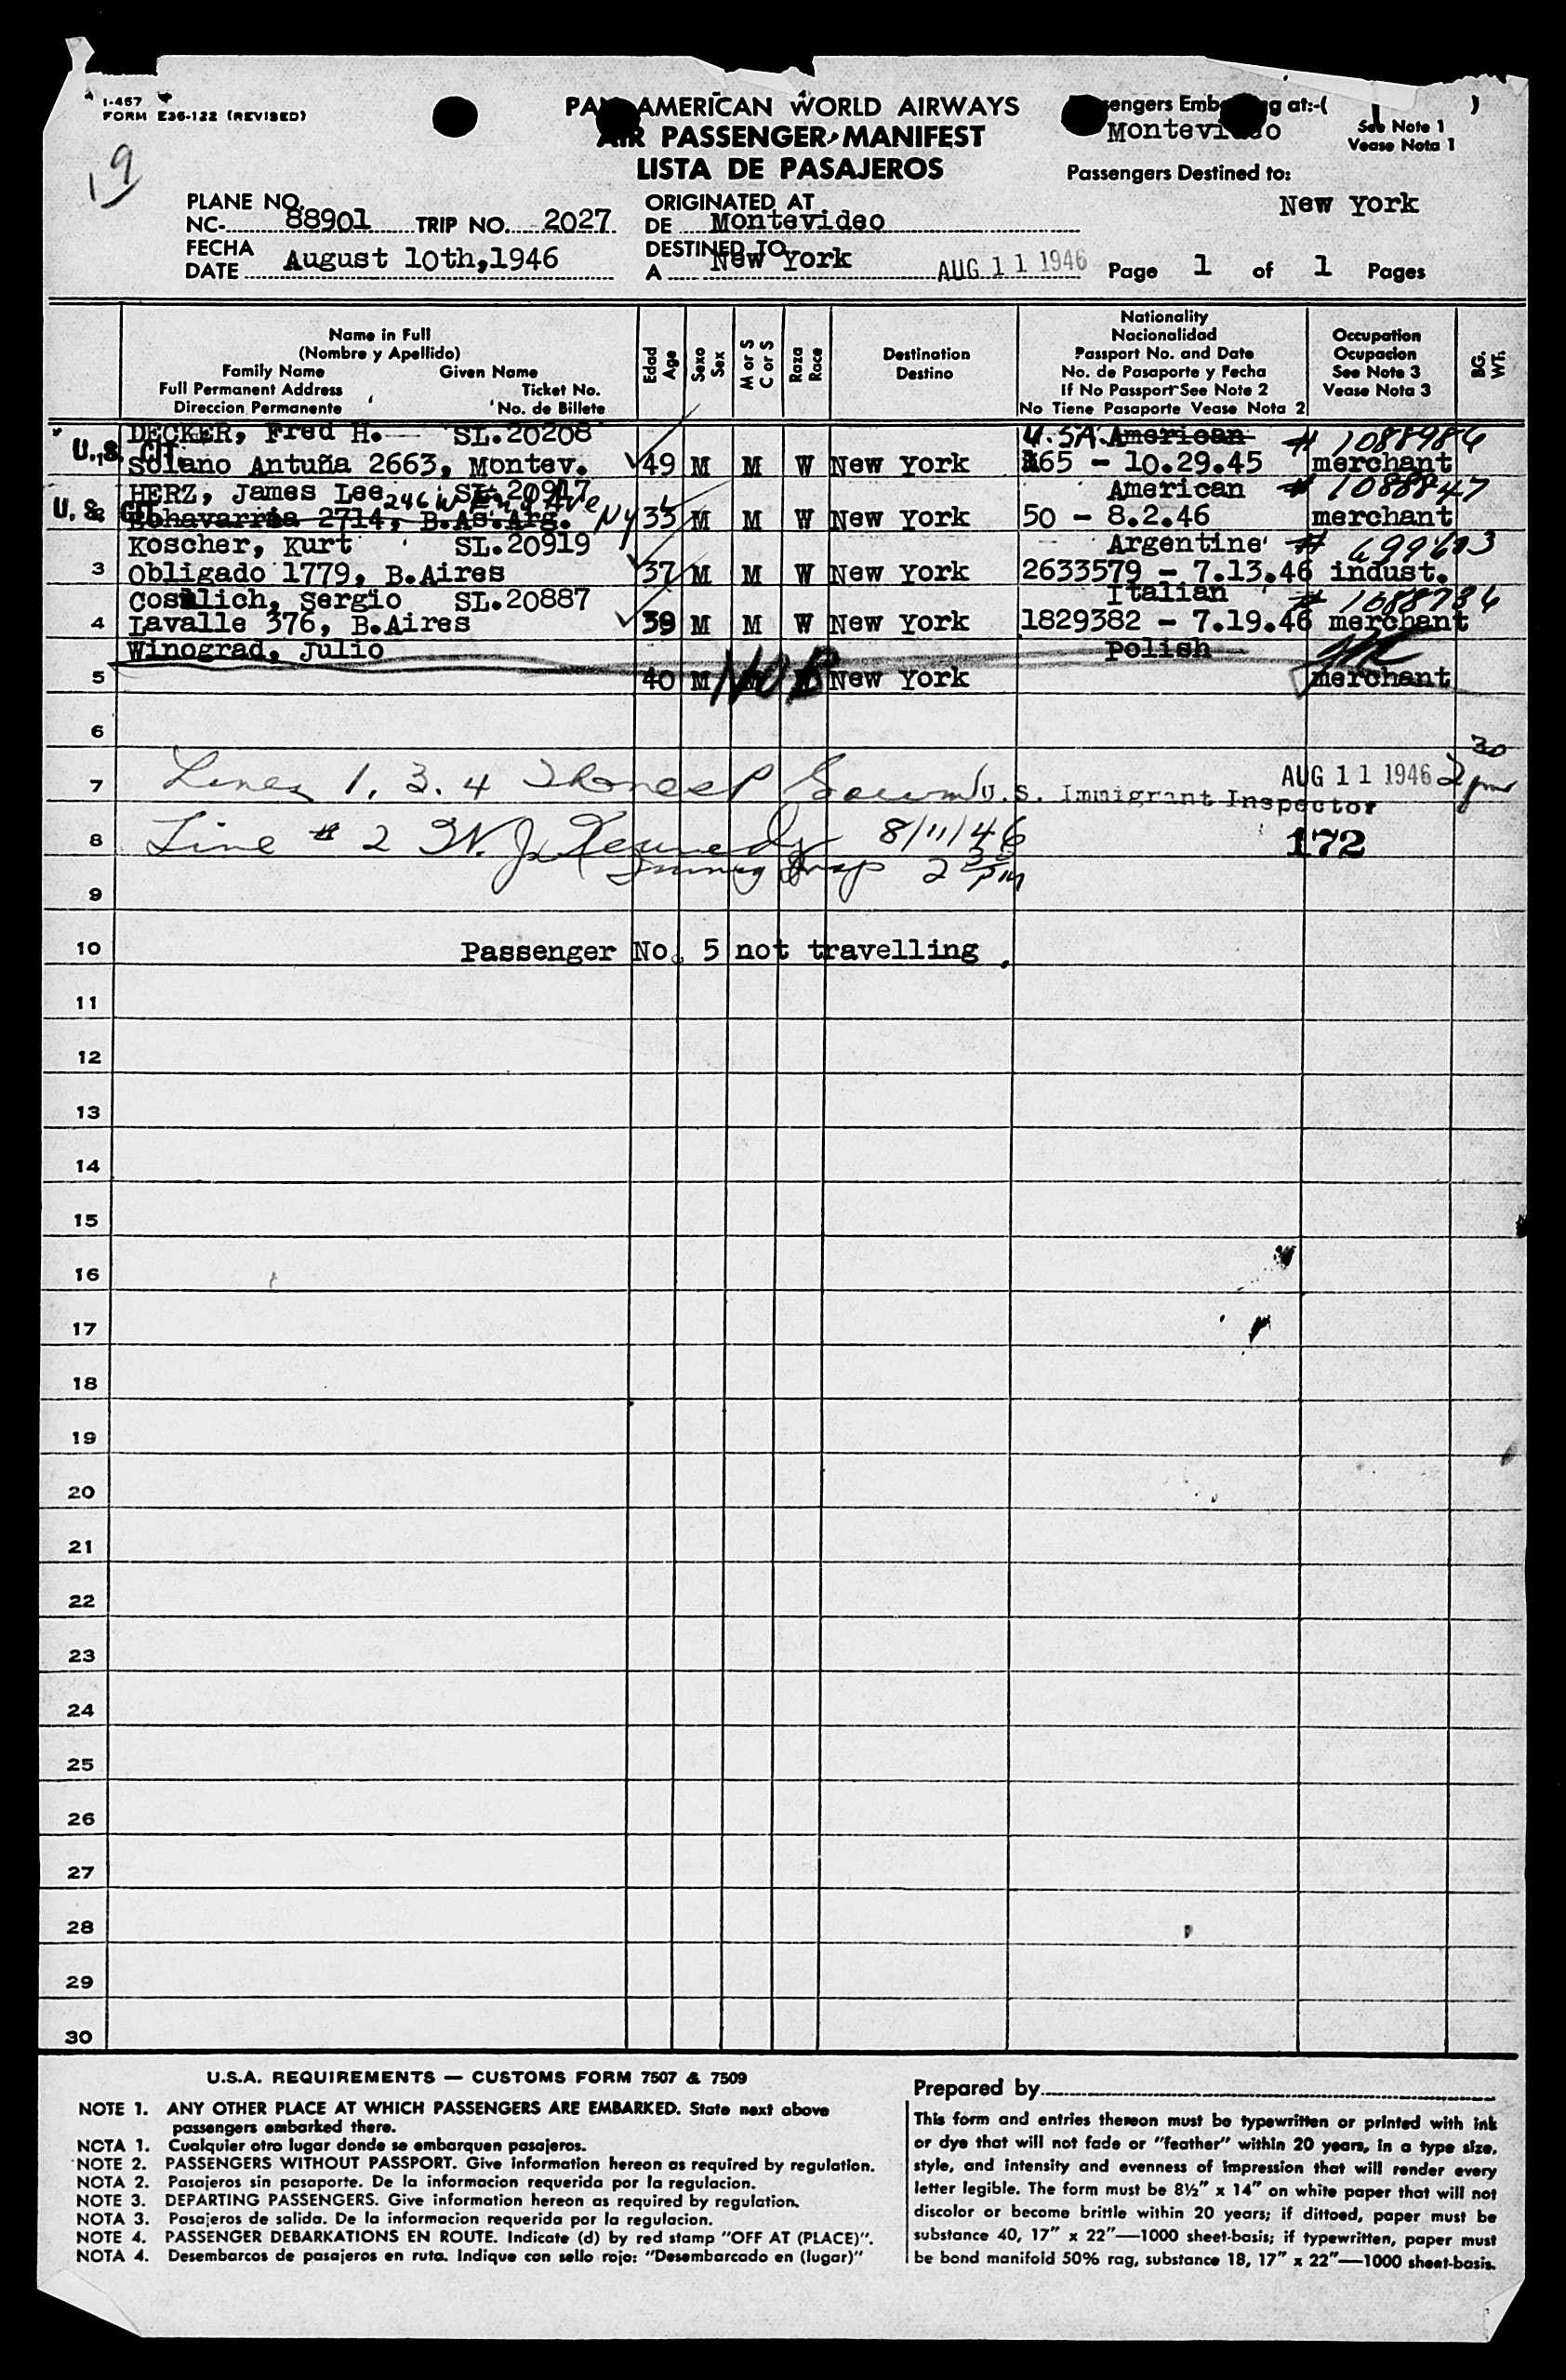 I-467
FORM E36-122 (REVISED)
19
PAN AMERICAN WORLD AIRWAYS
AIR PASSENGER MANIFEST
LISTA DE PASAJEROS
Passengers Embarking at:-( 1 )
Montevideo
See Note 1
Vease Nota 1
Passengers Destined to:
New York
PLANE NO.
NC- 88901 TRIP NO. 2027
FECHA
DATE August 10th,1946
ORIGINATED AT
DE Montevideo
DESTINED TO
A New York
AUG 11 1946
Page 1 of 1 Pages
Name in Full
(Nombre y Apellido)
Family Name Given Name
Full Permanent Address Ticket No.
Direccion Permanente No. de Billete
Edad
Age
Sexo
Sex
M or S
C or S
Raza
Race
Destination
Destino
Nationality
Nacionalidad
Passport No. and Date
No. de Pasaporte y Fecha
If No Passport See Note 2
No Tiene Pasaporte Vease Nota 2
Occupation
Ocupacion
See Note 3
Vease Nota 3
BG.
WT.
DECKER, Fred H. SL.20208 U.S.A. American # 1088986
U.S. CIT. Solano Antuña 2663, Montev. 49 M M W New York 165 - 10.29.45 merchant
HERZ, James Lee SL.20917 American # 1088847
246 W End Ave NY
U.S. CIT. Echavarria 2714, B.As.Arg. 35 M M W New York 50 - 8.2.46 merchant
Koscher, Kurt SL.20919 Argentine # 699603
3 Obligado 1779, B.Aires 37 M M W New York 2633579 - 7.13.46 indust.
Cosulich, Sergio SL.20887 Italian # 1088786
4 Lavalle 376, B.Aires 39 M M W New York 1829382 - 7.19.46 merchant
Winograd, Julio Polish
5 40 M NOB New York merchant
6
7 Lines 1, 3, 4 U.S. Immigrant Inspector AUG 11 1946 2 30 pm
8 Line # 2 W. J. Kennedy 8/11/46 172
Immig Insp 2 30 pm
9
10 Passenger No. 5 not travelling.
11
12
13
14
15
16
17
18
19
20
21
22
23
24
25
26
27
28
29
30
U.S.A. REQUIREMENTS — CUSTOMS FORM 7507 & 7509
NOTE 1. ANY OTHER PLACE AT WHICH PASSENGERS ARE EMBARKED. State next above
passengers embarked there.
NOTA 1. Cualquier otro lugar donde se embarquen pasajeros.
NOTE 2. PASSENGERS WITHOUT PASSPORT. Give information hereon as required by regulation.
NOTA 2. Pasajeros sin pasaporte. De la informacion requerida por la regulacion.
NOTE 3. DEPARTING PASSENGERS. Give information hereon as required by regulation.
NOTA 3. Pasajeros de salida. De la informacion requerida por la regulacion.
NOTE 4. PASSENGER DEBARKATIONS EN ROUTE. Indicate (d) by red stamp "OFF AT (PLACE)".
NOTA 4. Desembarcos de pasajeros en ruta. Indique con sello rojo: "Desembarcado en (lugar)"
Prepared by
This form and entries thereon must be typewritten or printed with ink
or dye that will not fade or "feather" within 20 years, in a type size,
style, and intensity and evenness of impression that will render every
letter legible. The form must be 8½" x 14" on white paper that will not
discolor or become brittle within 20 years; if dittoed, paper must be
substance 40, 17" x 22"—1000 sheet-basis; if typewritten, paper must
be bond manifold 50% rag, substance 18, 17" x 22"—1000 sheet-basis.